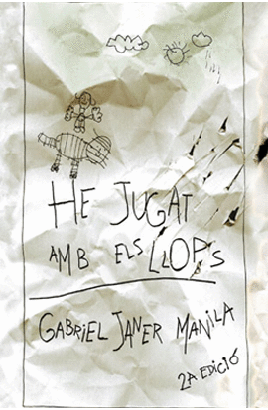 HE JUGAT
AMB ELS LLOPS
GABRIEL JANER MANILA
2A EDICIÓ